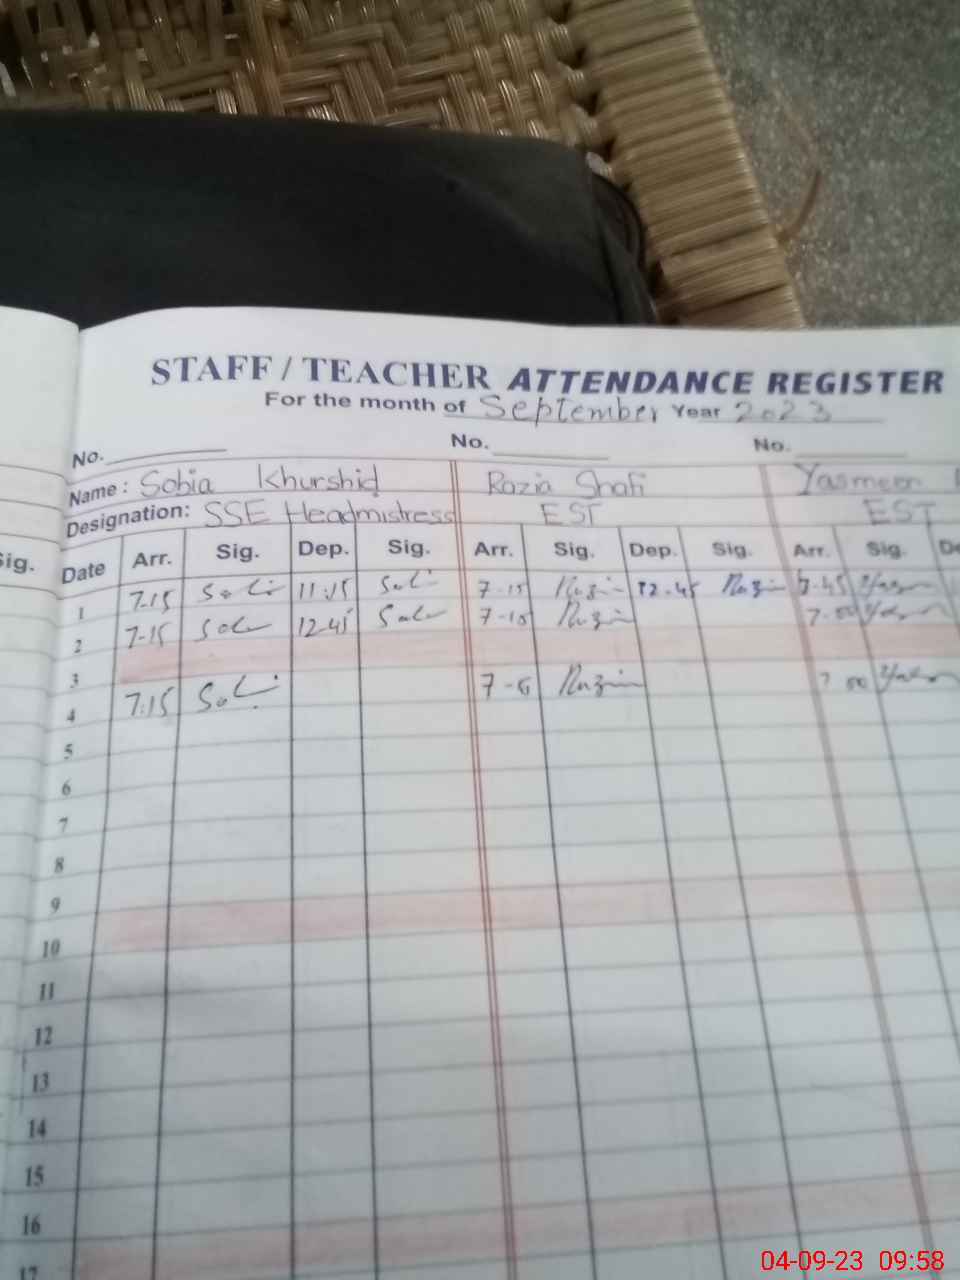 STAFF / TEACHER ATTENDANCE REGISTER
For the month of September Year 2023
No. No. No.
Name: Sobia Khurshid Razia Shafi Yasmeen
Designation: SSE Headmistress EST EST
Sig. Date Arr. Sig. Dep. Sig. Arr. Sig. Dep. Sig. Arr. Sig. De
1 7-15 11:15 7-15 12.45 7-45
2 7-15 12.45 7-10 7.00
3
4 7.15 7-6 7 00
5
6
7
8
9
10
11
12
13
14
15
16
17
04-09-23 09:58